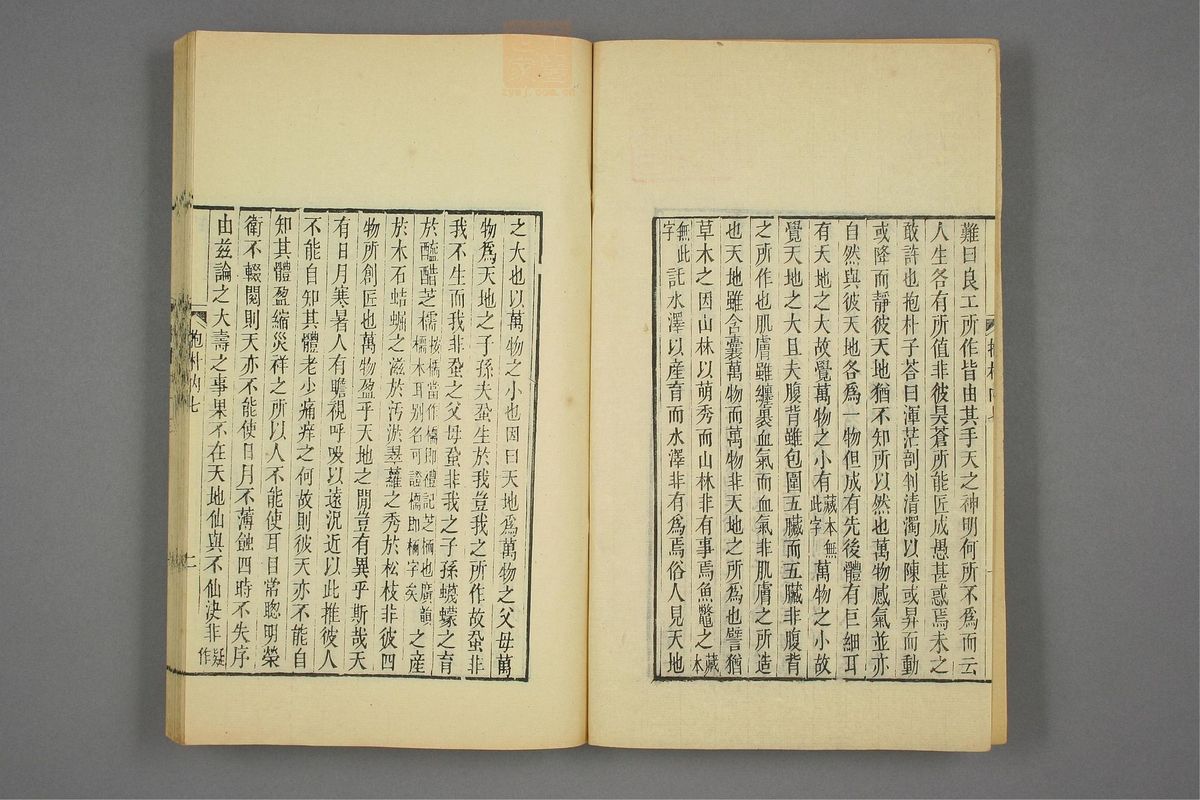 難曰良工所作皆由其手天之神明何所不爲而云
人生各有所值非彼昊蒼所能匠成愚甚惑焉未之
敢許也抱朴子荅曰渾茫剖判清濁以陳或昇而動
或降而靜彼天地猶不知所以然也萬物感氣並亦
自然與彼天地各爲一物但成有先後體有巨細耳
有天地之大故覺萬物之小有藏本無此字萬物之小故
覺天地之大且夫腹背雖包圍五臟而五臟非腹背
之所作也肌膚雖纏裹血氣而血氣非肌膚之所造
也天地雖含囊萬物而萬物非天地之所爲也譬猶
草木之因山林以萌秀而山林非有事焉魚鼈之藏本
無此字託水澤以産育而水澤非有爲焉俗人見天地
之大也以萬物之小也因曰天地爲萬物之父母萬
物爲天地之子孫夫蝨生於我豈我之所作故蝨非
我不生而我非蝨之父母蝨非我之子孫蠛蠓之育
於醯醋芝檽按檽當作㮕即禮記芝栭也廣韻㮕木耳别名可證㮕即栭字矣之産
於木石蛣𧌑之滋於汚淤翠蘿之秀於松枝非彼四
物所創匠也萬物盈乎天地之閒豈有異乎斯哉天
有日月寒暑人有瞻視呼吸以遠況近以此推彼人
不能自知其體老少痛癢之何故則彼天亦不能自
知其體盈縮災祥之所以人不能使耳目常聰明榮
衛不輟閡則天亦不能使日月不薄蝕四時不失序
由兹論之大壽之事果不在天地仙與不仙決非疑作
抱朴内七
二